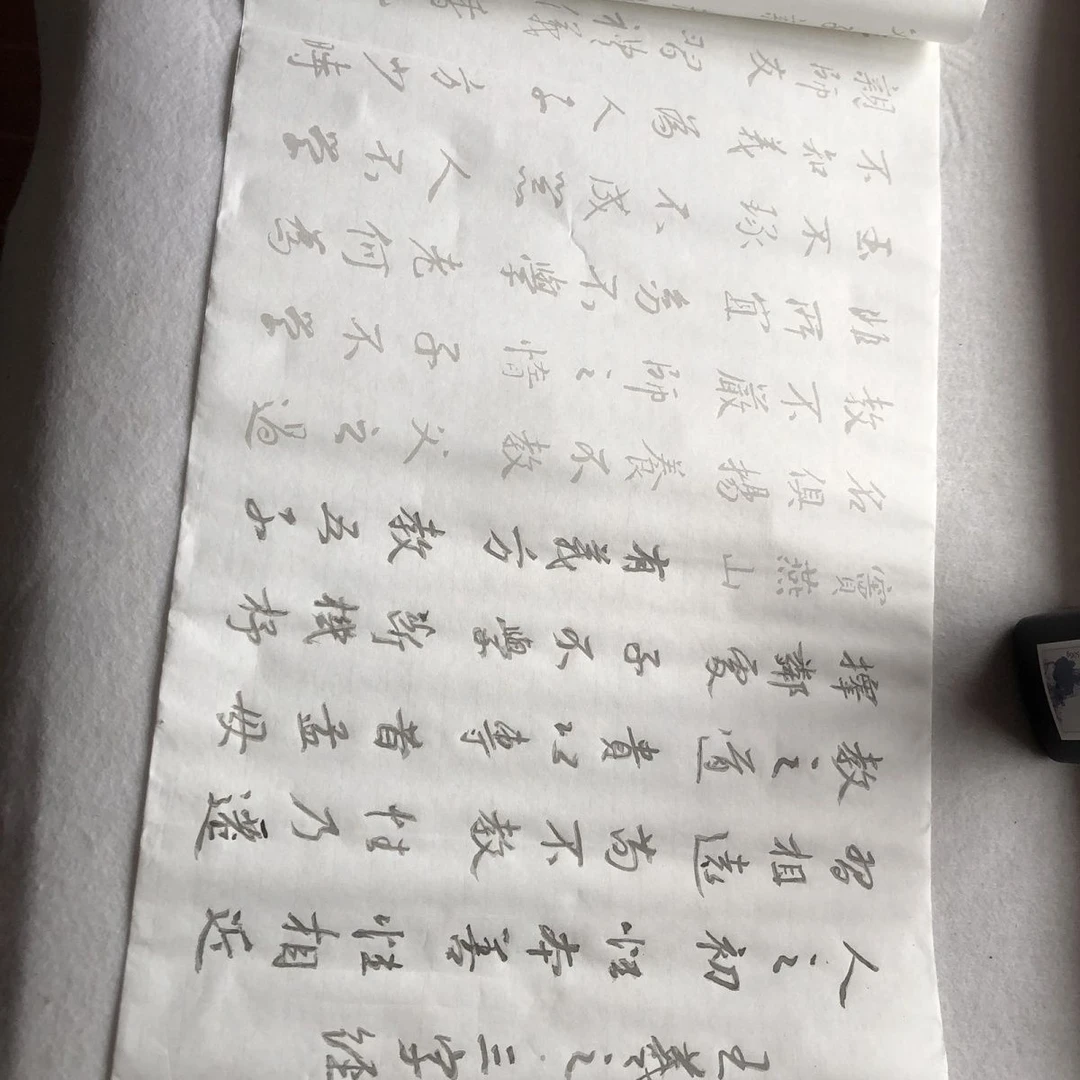 王羲之三字經
人之初性本善性相近
習相遠苟不教性乃遷
教之道貴以專昔孟母
擇鄰處子不學斷機杼
竇燕山有義方教五子
名俱揚養不教父之過
教不嚴師之惰子不学
非所宜幼不學老何為
玉不琢不成器人不学
不知義為人子方少時
親師友習禮儀